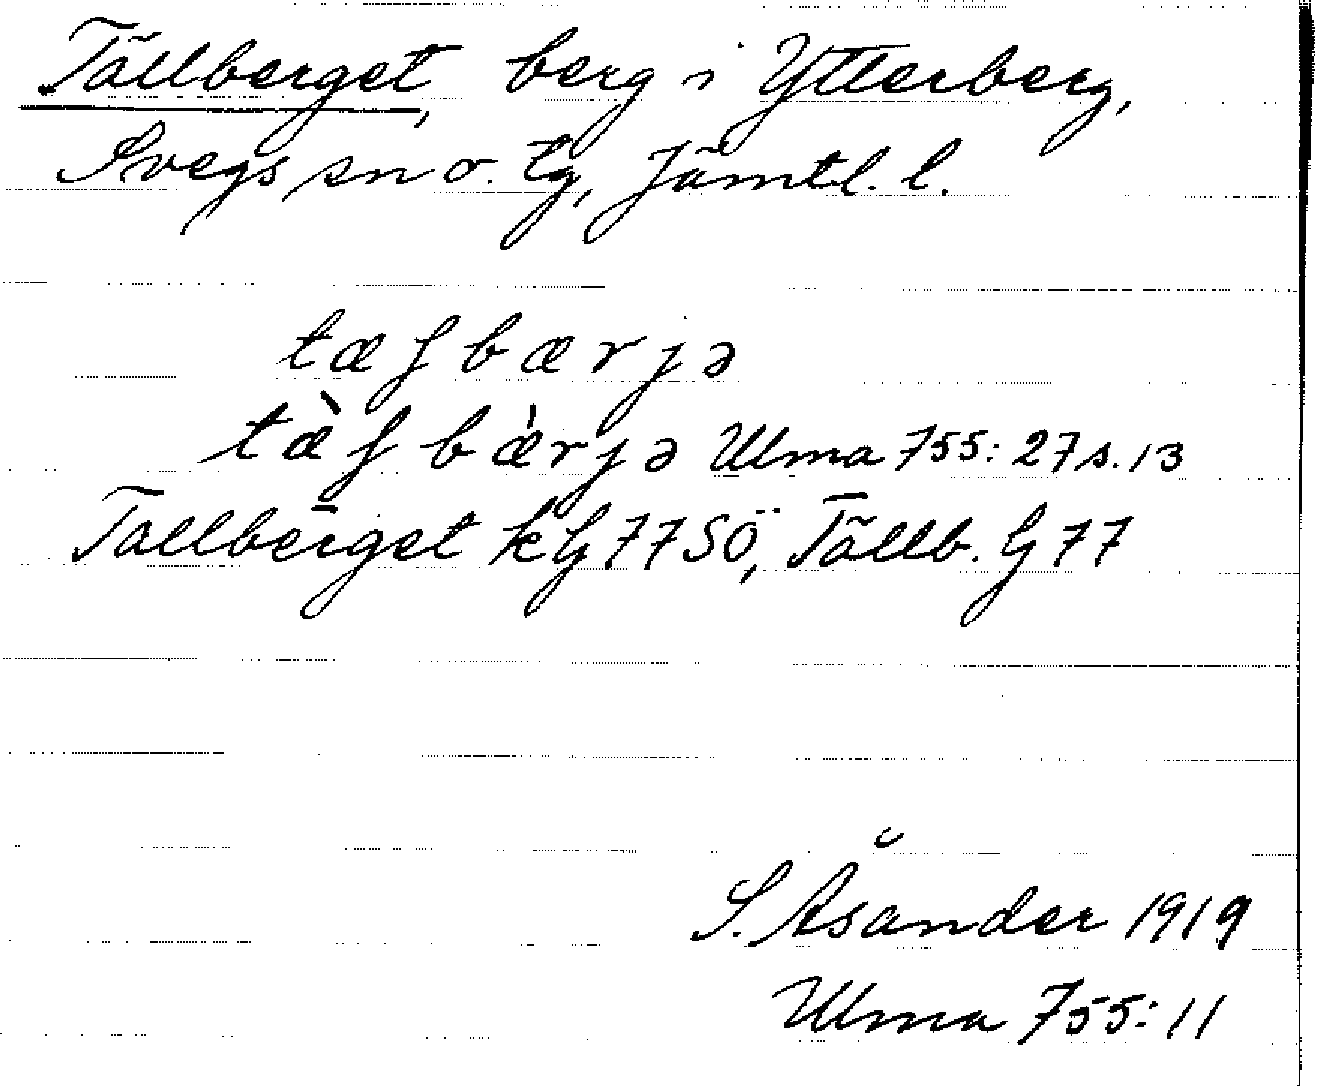 Tällberget, berg i Ytterberg,
Svegs sn o. tg, Jämtl. l.
tæʃbærjə
tæ̀ʃbæ̀rjə Ulma 755: 27 s. 13
Tallberget kG 77 SÖ, Tällb. G 77
S. Åsander 1919
Ulma 755: 11